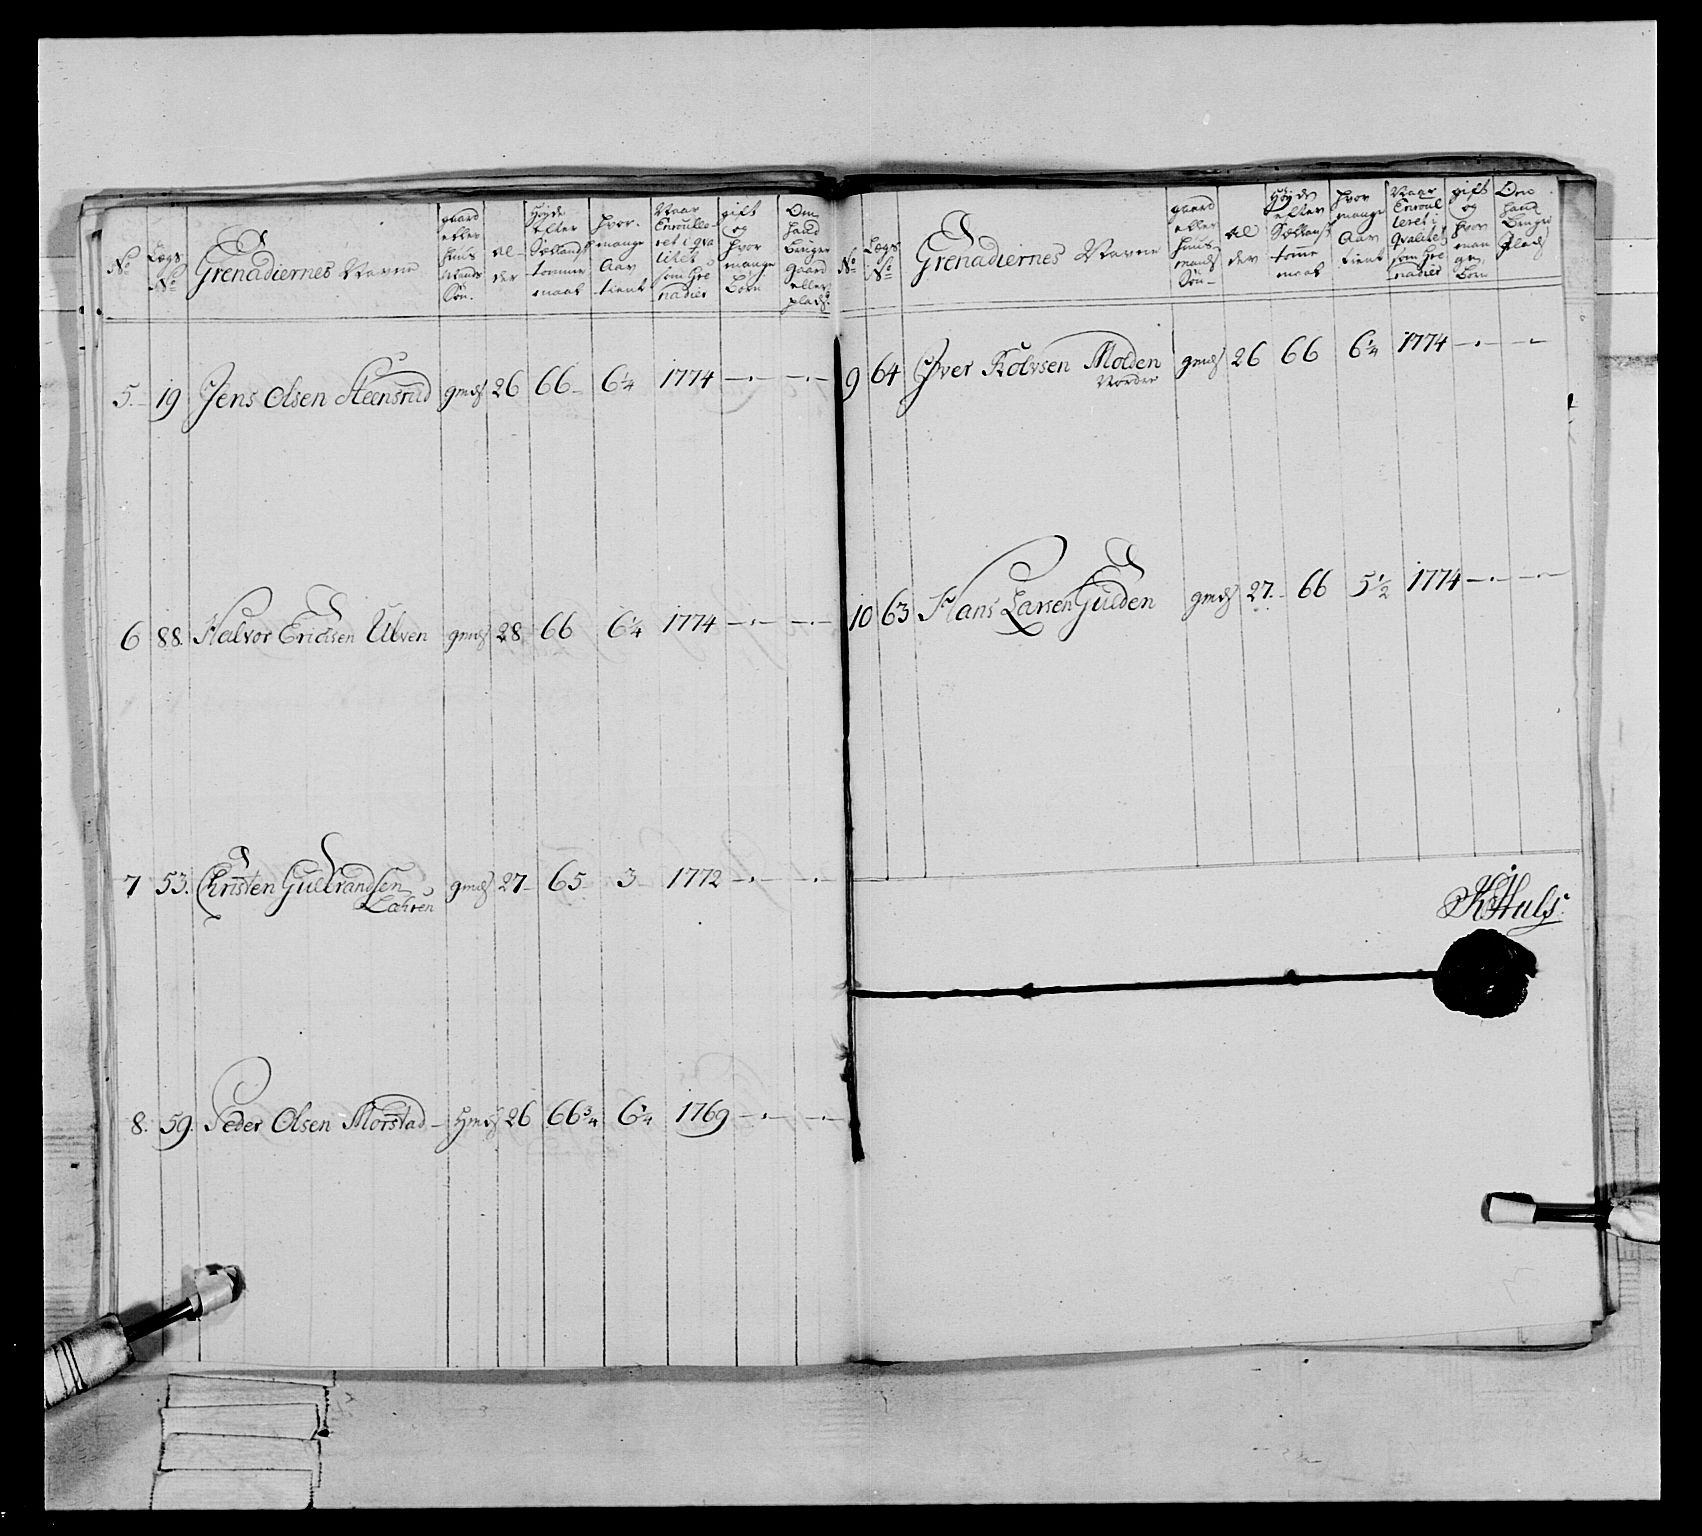 No
Lægs No
Grenadiernes Navne
gaard eller huus mands Søn.
Al-der
Høyde efter Siællands tommer maal
hvor-mange Aar tient
Naar Enroulle-ret i qva litet som Gre nadier
gift og hvor mange børn
Om hand bruger gaard eller plads
5. 19 Jens Olsen Steensrud gmds 26 66 6¼ 1774
6 88. Halvor Ericksen Ulven gmds 28 66 6¼ 1774
7 53. Christen Gulbrandsen gmds 27 65 3 1772
Læhren
8. 59. Peder Olsen Morstad Hmds 26 66¾ 6¼ 1769
No
Lægs No
Grenadiernes Navne
gaard eller huus mands Søn
Al der
Høyde efter Siællands tomme maal
hvor mange Aar tient
Naar Enroul leret i Qvalitet som Gre nadier
gift og hvor man ge børn
Om hand bruger Plads
9 64 Iver Kolvsen Molden gmds 26 66 6¼ 1774
Nordre
10 63 Hans Larsen Gulden gmds 27 66 5½ 1774